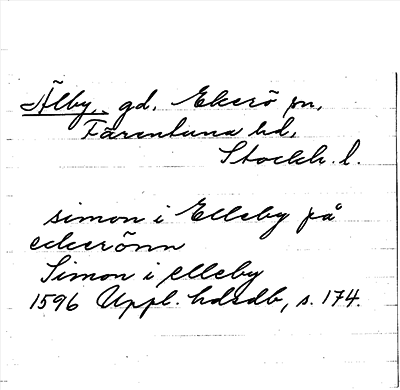 Älby, gd, Ekerö sn,
Färentuna hd,
Stockh. l.
simon i Elleby på
eckerönn
Simon i elleby
1596 Uppl. hdrdb, s. 174.